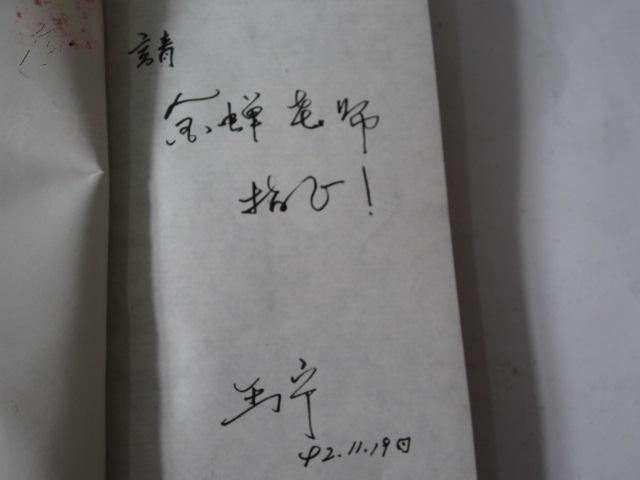 請
金蝉老师
指正!
马宁
92.11.19日